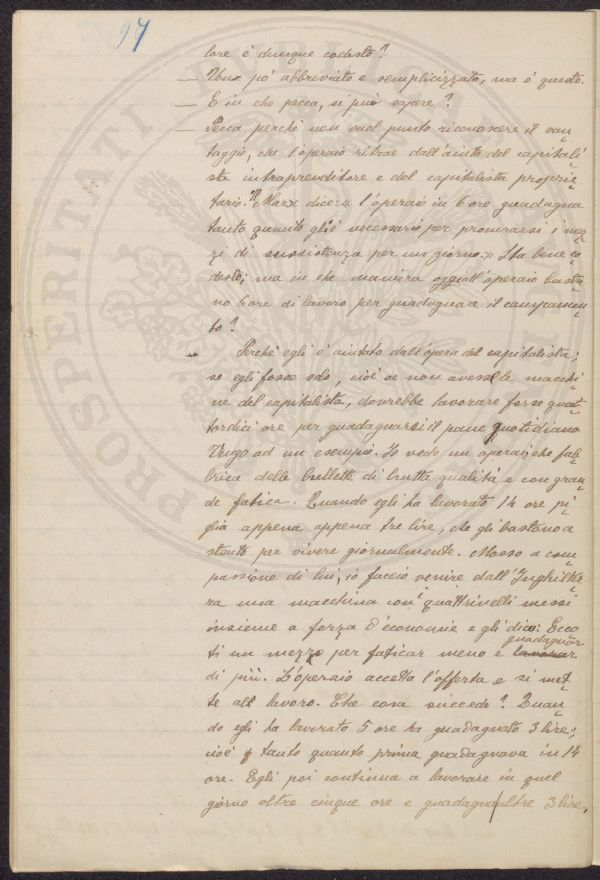 97
lore è dunque codesto?
— Un po' abbreviato e semplicizzato, ma è questo.
— E in che pecca, si può sapere?
— Pecca perchè non vuol punto riconoscere il van-
taggio, che l'operaio ritrae dall'aiuto del capitali-
sta intraprenditore e del capitalista proprie-
tario. Marx dice: « l'operaio in 6 ore guadagna
tanto quanto gli è necessario per procurarsi i mez-
zi di sussistenza per un giorno.» Sta bene co-
desto; ma in che maniera oggi all'operaio basta-
no 6 ore di lavoro per guadagnare il campamen-
to?
— Perchè egli è aiutato dall'opera del capitalista;
se egli fosse solo, cioè se non avesse le macchi-
ne del capitalista, dovrebbe lavorare forse quat-
tordici ore per guadagnarsi il pane quotidiano
Vengo ad un esempio. Io vedo un operaio che fab-
brica delle bullette di brutta qualità e con gran-
de fatica. Quando egli ha lavorato 14 ore pi-
glia appena appena tre lire, che gli bastono a
stento per vivere giornalmente. Mosso a com-
passione di lui, io faccio venire dall'Inghilter-
ra una macchina con quattrinelli messi
insieme a forza d'economie e gli dico: Ecco
guadagnar
ti un mezzo per faticar meno e lavorar
di più. L'operaio accetta l'offerta e si met-
te al lavoro. Che cosa succede? Quan-
do egli ha lavorato 5 ore ha guadagnato 3 lire;
cioè tanto quanto prima guadagnava in 14
ore. Egli poi continua a lavorare in quel
giorno oltre cinque ore e guadagna oltre 3 lire,
PROSPERITATI PUBLICAE